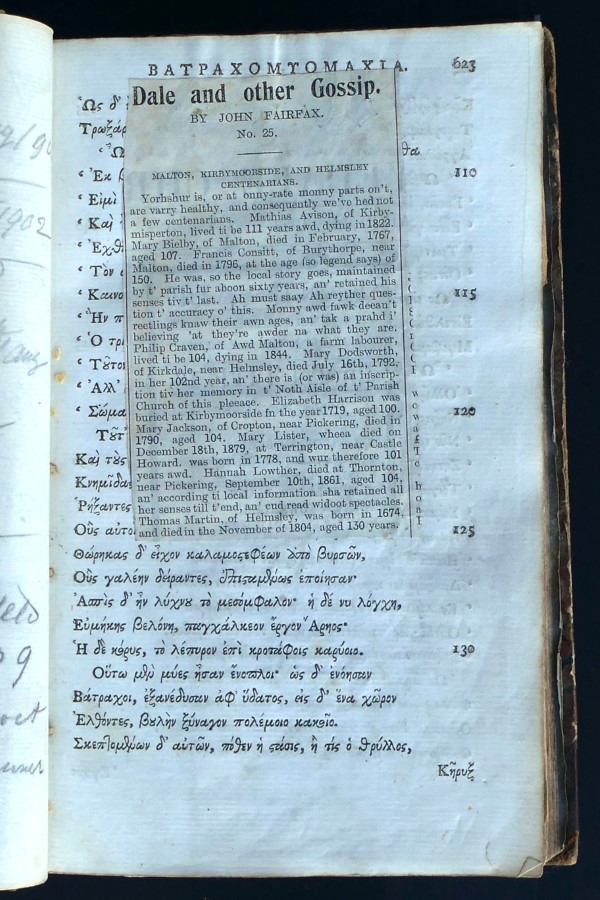 ΒΑΤΡΑΧΟΜΥΟΜΑΧΙΑ. 623
Dale and other Gossip.
BY JOHN FAIRFAX.
No. 25.
MALTON, KIRBYMOORSIDE, AND HELMSLEY
CENTENARIANS.
Yorhshur is, or at onny-rate monny parts on't,
are varry healthy, and consequently we've hed not
a few centenarians. Mathias Avison, of Kirby-
misperton, lived ti be 111 years awd, dying in 1822.
Mary Bielby, of Malton, died in February, 1767,
aged 107. Francis Consitt, of Burythorpe, near
Malton, died in 1796, at the age (so legend says) of
150. He was, so the local story goes, maintained
by t' parish fur aboon sixty years, an' retained his
senses tiv t' last. Ah must saay Ah reyther ques-
tion t' accuracy o' this. Monny awd fawk deean't
reetlings knaw their awn ages, an' tak a prahd i'
believing 'at they're awder na what they are.
Philip Craven, of Awd Malton, a farm labourer,
lived ti be 104, dying in 1844. Mary Dodsworth,
of Kirkdale, near Helmsley, died July 16th, 1792,
in her 102nd year, an' there is (or was) an inscrip-
tion tiv her memory in t' Noth Aisle of t' Parish
Church of this pleeace. Elizabeth Harrison was
buried at Kirbymoorside in the year 1719, aged 100.
Mary Jackson, of Cropton, near Pickering, died in
1790, aged 104. Mary Lister, wheea died on
December 18th, 1879, at Terrington, near Castle
Howard. was born in 1778, and wur therefore 101
years awd. Hannah Lowther, died at Thornton,
near Pickering, September 10th, 1861, aged 104,
an' according ti local information sha retained all
her senses till t'end, an' cud read widoot spectacles.
Thomas Martin, of Helmsley, was born in 1674,
and died in the November of 1804, aged 130 years.
Ὡς δ'
Τρωξάρ
θα
Ἐκ 110
Εἰμὶ
Καὶ
Ἐχθ
Τὸν
Καινο 115
Ἢν π
Ὁ τρ
Τȣ͂το
Ἀλλ'
Σῶμα 120
Τȣ͂τ'
Καὶ τȣ̀ς
Κνημῖδας
Ῥήξαντες
Οὓς αὐτοὶ 125
Θώρηκας δ' εἶχον καλαμοςεφέων ἀπὸ βυρσῶν,
Οὓς γαλέην δείραντες, ἐπιςαμένως ἐποίησαν·
Ἀσπὶς δ' ἦν λύχνυ τὸ μεσόμφαλον· ἡ δέ νυ λόγχη,
Εὐμήκης βελόνη, παγχάλκεον ἔργον Ἄρηος·
Ἡ δὲ κόρυς, τὸ λέπυρον ἐπὶ κροτάφοις καρύοιο. 130
Οὕτω μὲν μύες ἦσαν ἔνοπλοι· ὡς δ' ἐνόησαν
Βάτραχοι, ἐξανέδυσαν ἀφ' ὕδατος, εἰς δ' ἕνα χῶρον
Ἐλθόντες, βȣλὴν ξύναγον πολέμοιο κακοῖο.
Σκεπτομένων δ' αὐτῶν, πόθεν ἡ ςάσις, ἢ τίς ὁ θρύλλος,
Κῆρυξ
1902
9